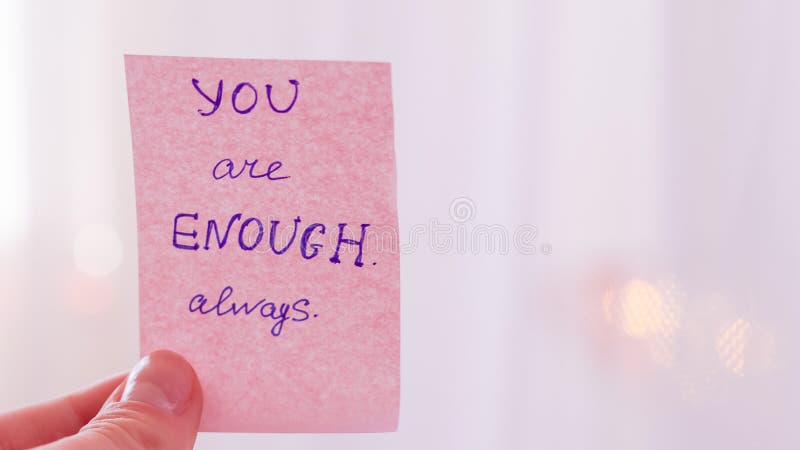 YOU
are
ENOUGH.
always.
dreamstime